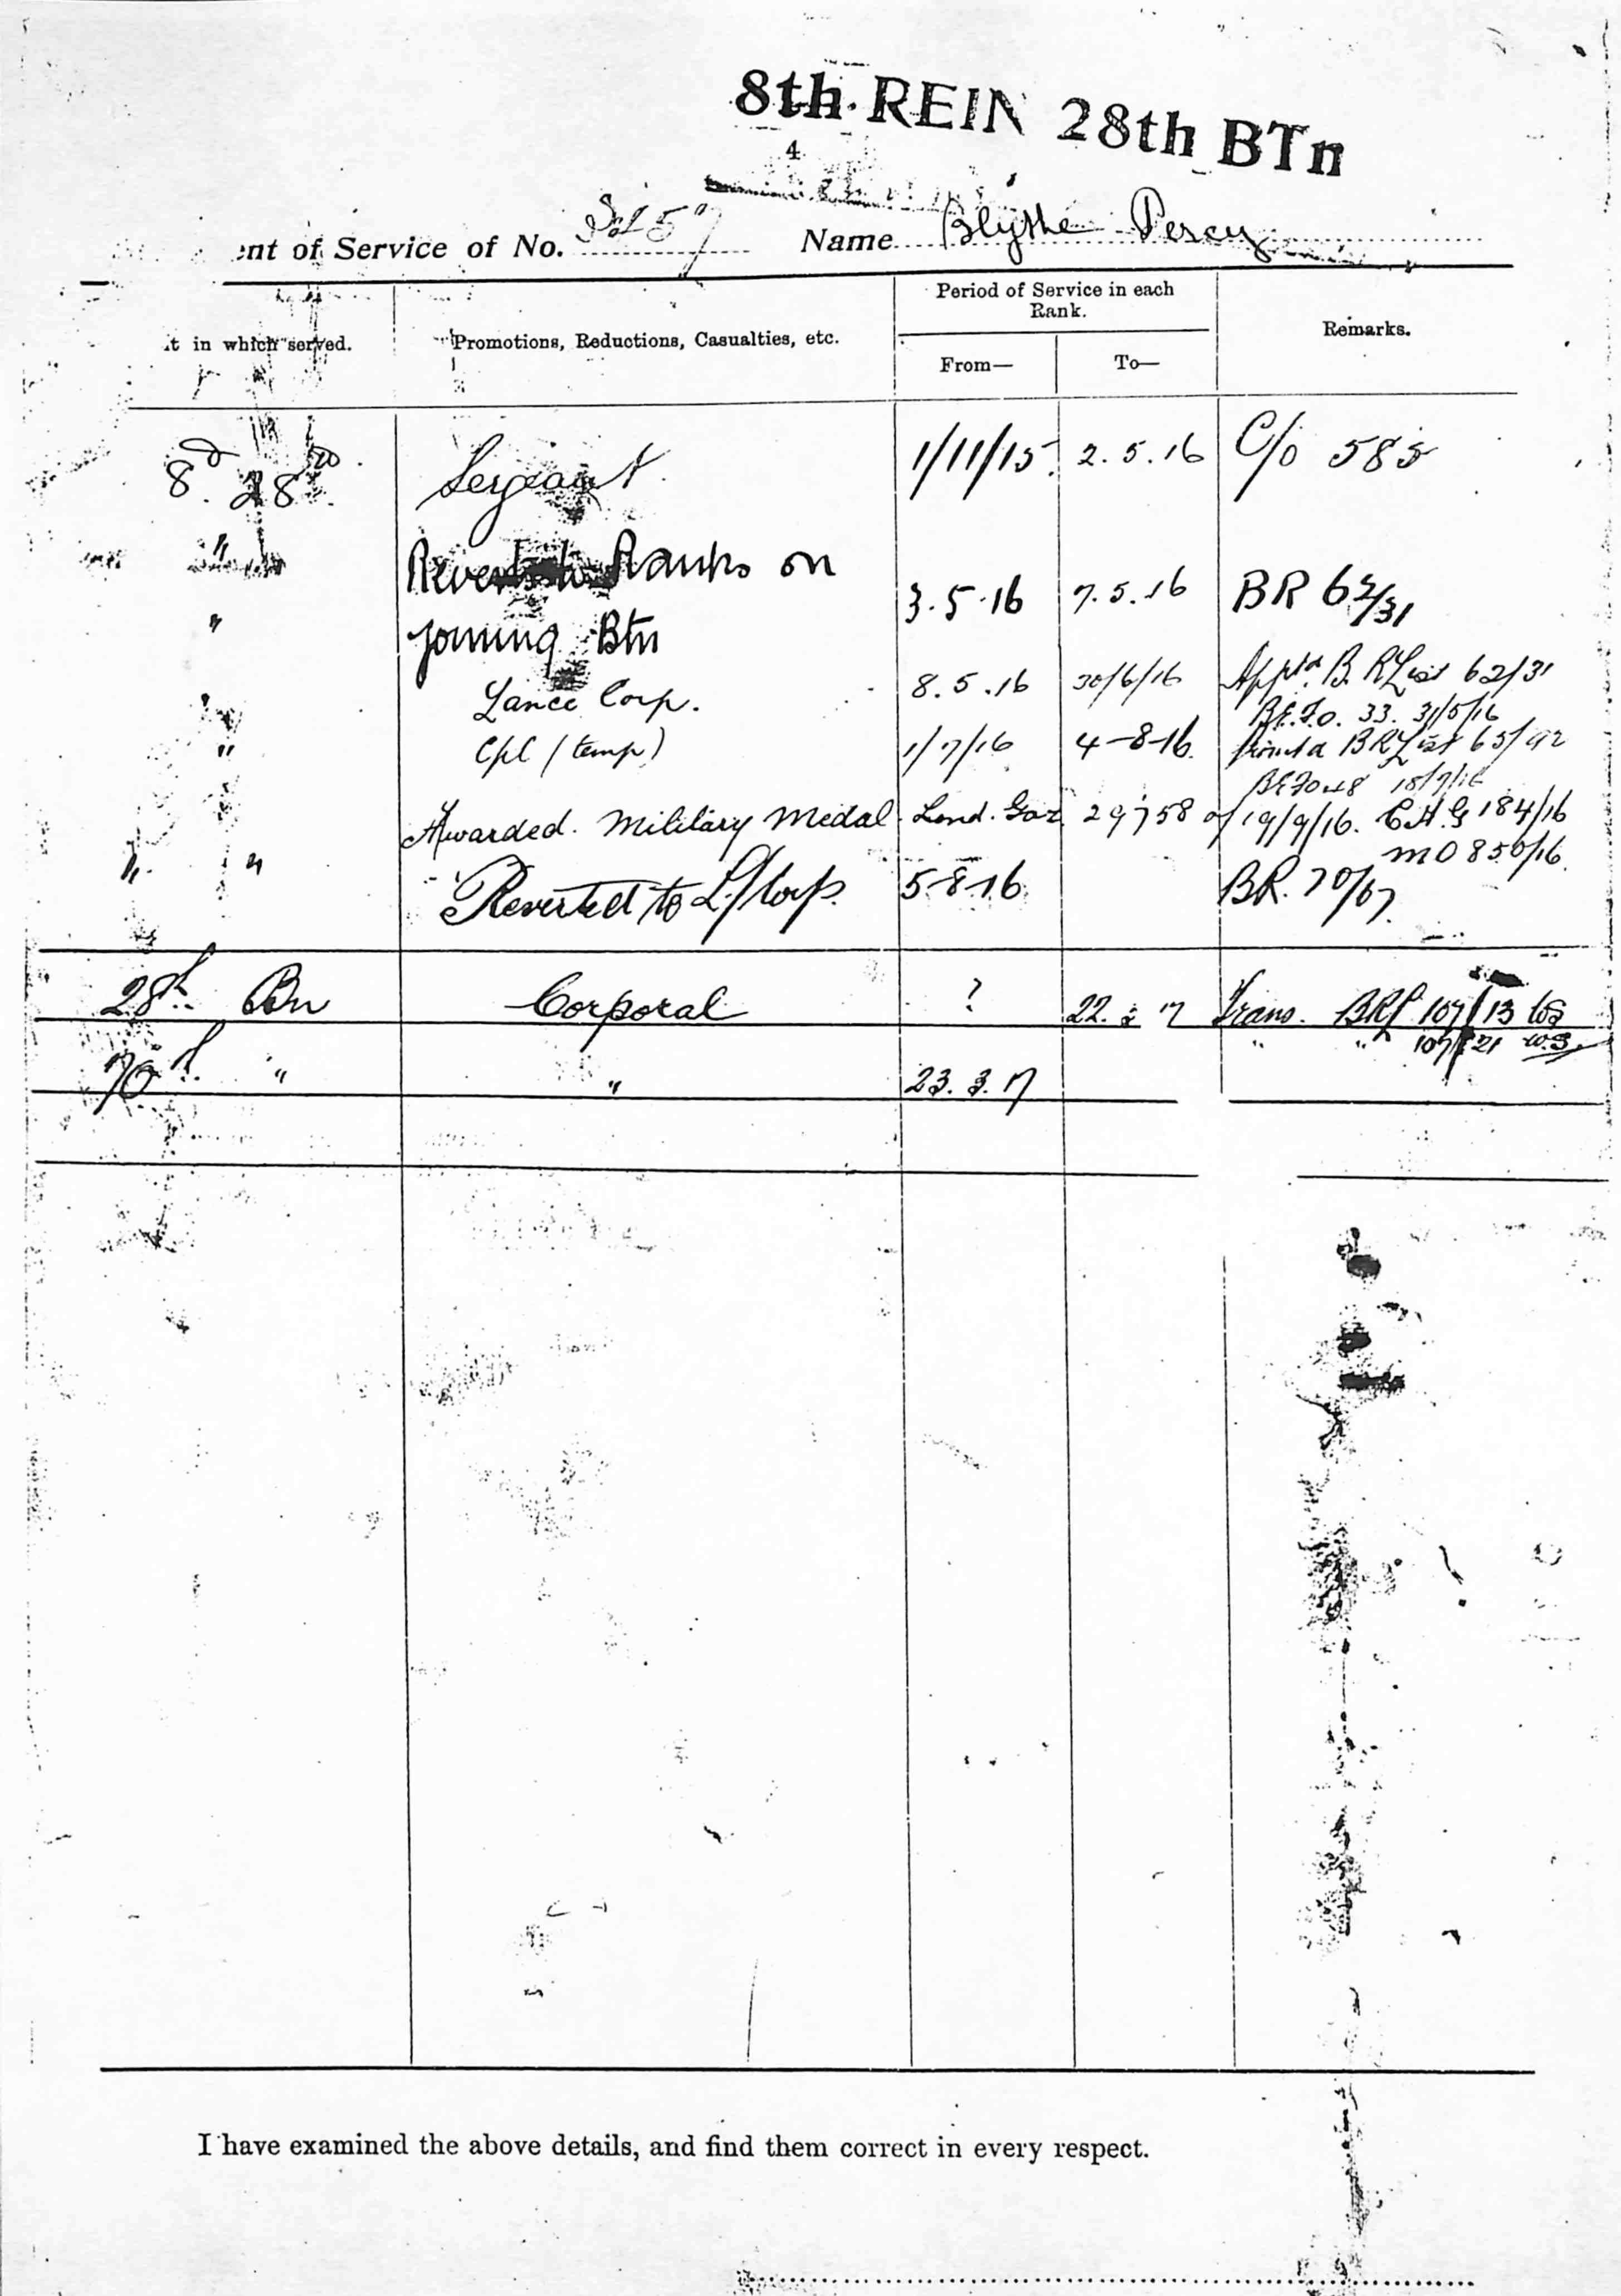 8th. REIN 28th BTn
4
ent of Service of No. Name Blythe Percy
t in which served. Promotions, Reductions, Casualties, etc. Period of Service in each Rank. Remarks.
From— To—
8. 28 Sergeant 1/11/15. 2.5.16 C/o 585
" Ranks on
" joining Btn 3.5.16 7.5.16 BR 62/31
Lance Corp. 8.5.16 30/6/16 Apptd. B.R List 62/31
33. 31/5/16
" Cpl (temp) 1/7/16 4-8-16. BRList 65/92
18/7/16
Awarded. Military Medal. Lond. Gaz 29758 of 19/9/16. C.A.G 184/16
MO 850/16.
" " Reverted to L/Corp. 5-8-16. BR. 70/67.
28th Bn Corporal ? 22. 17 Trans. 107/13
" " 107/21
70th " " 23.3.17
I have examined the above details, and find them correct in every respect.